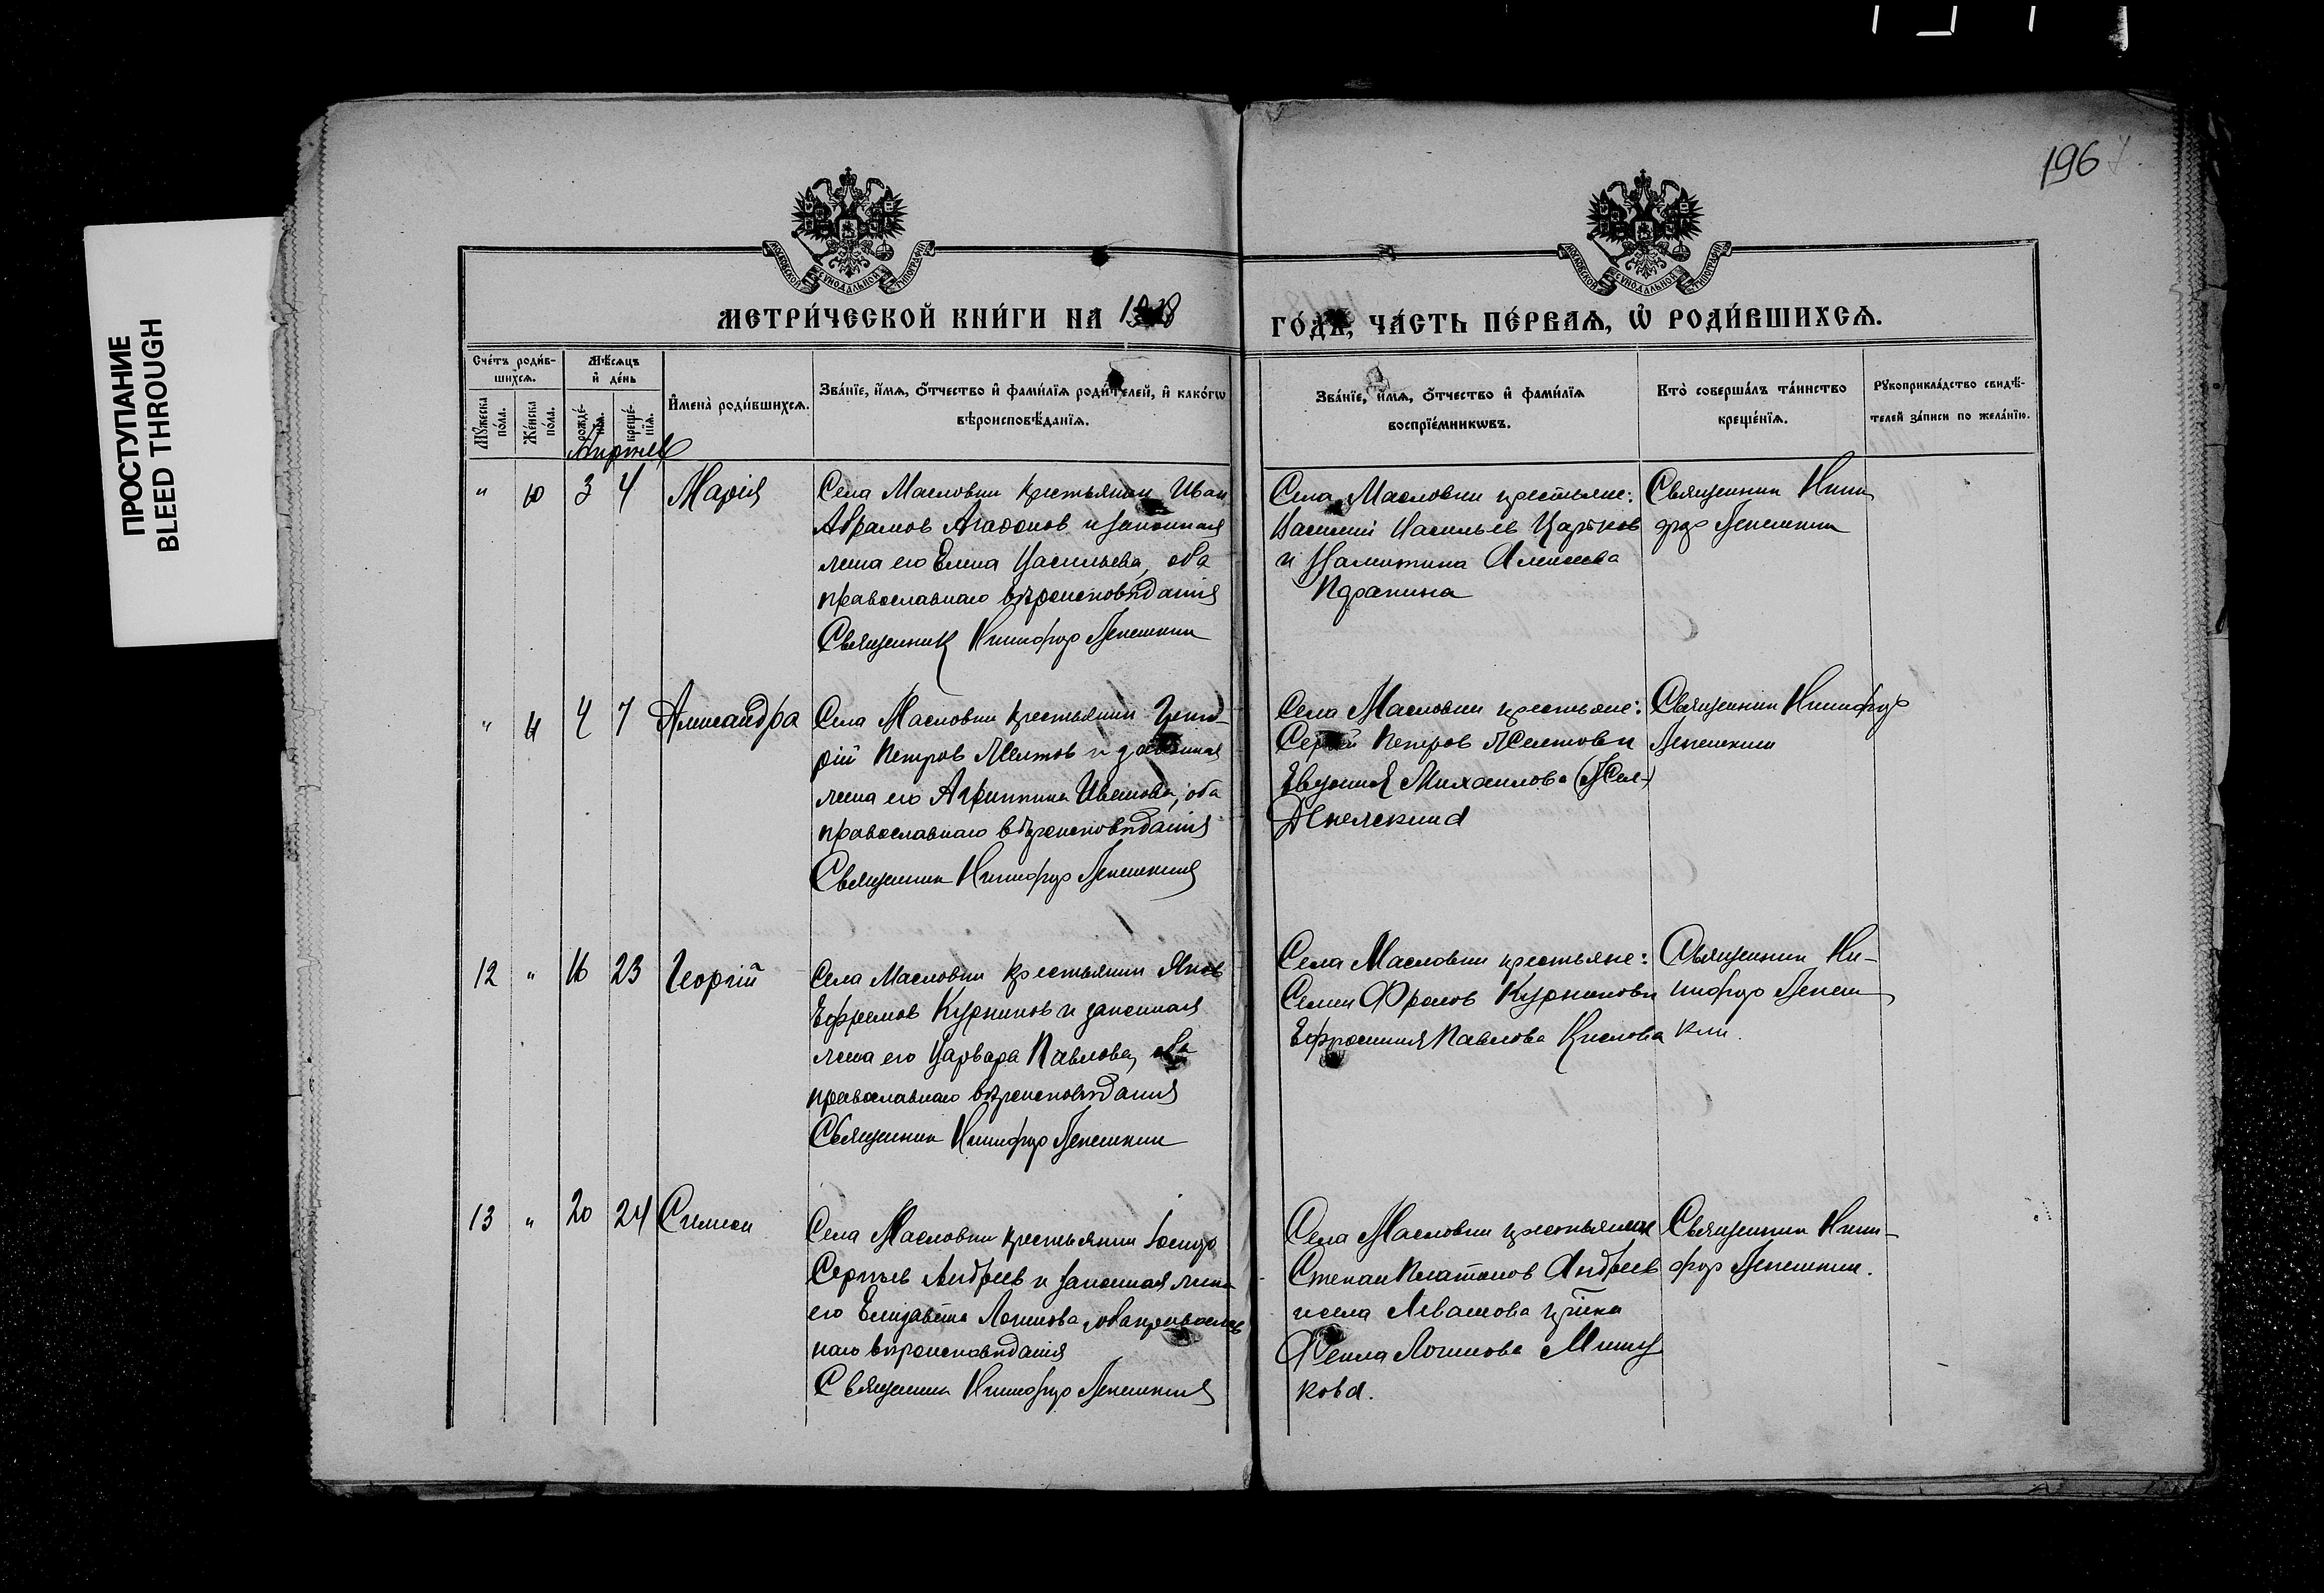 ПРОСТУПАНИЕ
BLEED THROUGH
196
МОСКОВСКОЙ СѴНОДАЛЬНОЙ ТИПОГРАФІИ
МОСКОВСКОЙ СѴНОДАЛЬНОЙ ТИПОГРАФІИ
МЕТРИ́ЧЕСКОЙ КНИ́ГИ НА 1918
ГО́ДЪ, ЧА́СТЬ ПЕ́РВАѦ, Ѡ҆ РОДИ́ВШИХСѦ.
Сче́тъ роди́в-
шихсѧ.
Мѣ́сѧцъ
и҆ де́нь
Мꙋ́жеска
по́ла.
Же́нска
по́ла.
рожде́-
нїѧ.
креще́-
нїѧ.
И҆мена̀ роди́вшихсѧ.
Зва́нїе, и҆́мѧ, ѻ҆́тчество и҆ фами́лїѧ роди́телей, и҆ како́гѡ
вѣроисповѣ́данїѧ.
Зва́нїе, и҆́мѧ, ѻ҆́тчество и҆ фами́лїѧ
воспрїе́мникѡвъ.
Кто̀ соверша́лъ та́инство
креще́нїѧ.
Рꙋкоприкла́дство свидѣ́-
телей за́писи по жела́нїю.
Апрель
" 10 3 4 Марія
Села Масловки крестьянин Иван
Абрамов Агафонов и законная
жена его Елена Васильева, оба
православнаго вѣроисповѣдания
Священник Никифор Лепешкин
Села Масловки крестьяне:
Василий Васильев Царьков
и Алексеева
Священник Ники
фор Лепешкин
" 11 4 7 Александра
Села Масловки крестьянин
рій Петров Желтов и законная
жена его Агриппина Иванова, оба
православнаго вѣроисповѣдания
Священник Никифор Лепешкин
Села Масловки крестьяне:
Сергѣй Петров Желтов и
Евдокия Михаилова
Священник Никифор
Лепешкин
12 " 16 23 Георгий
Села Масловки крестьянин Яков
Ефремов Курников и законная
жена его Варвара Павлова, оба
православнаго вѣроисповѣдания
Священник Никифор Лепешкин
Села Масловки крестьяне:
Семен Фролов Курников и
Ефросиния Павлова Кислова
Священник Ни-
кифор Лепеш
кин.
13 " 20 24 Симеон
Села Масловки крестьянин
Сергѣев Андреев и законная жена
его Елизавета Логинова, оба православ
наго вѣроисповѣдания
Священник Никифор Лепешкин
Села Масловки крестьяне
Степан Платонов Андреев
и села Левашова кр-нка
Фекла Логинова Мишу
кова.
Священник Ники-
фор Лепешкин.